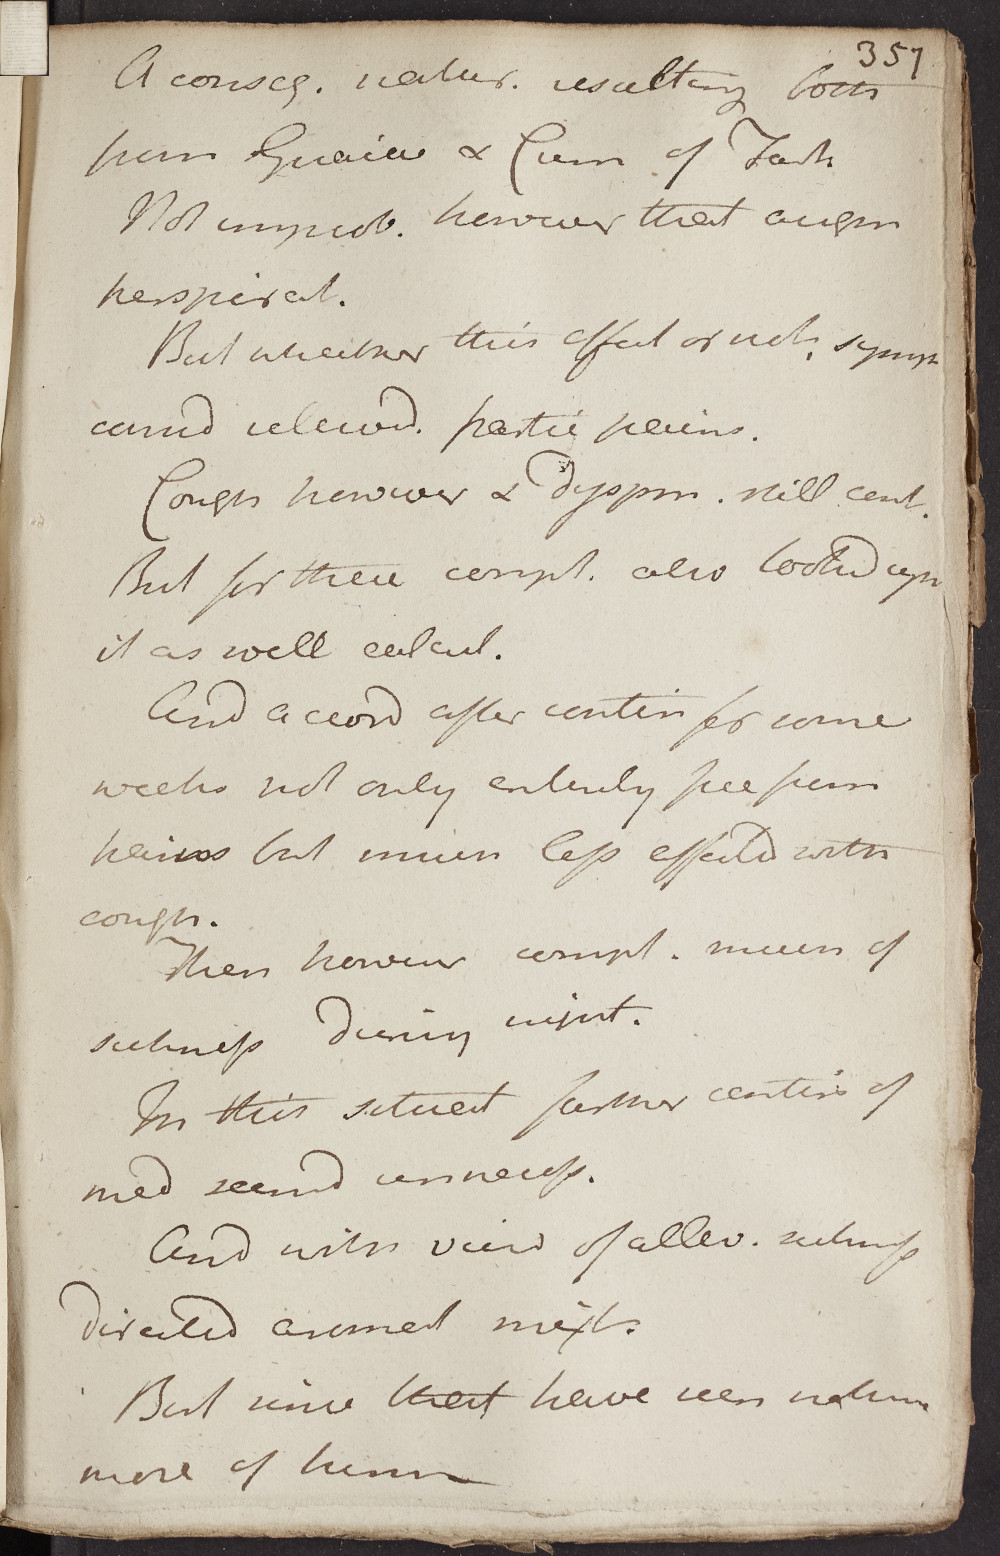 357
A conseq. natur. resulting both
from Guaiac & Crem of Tart
Not improb. however that augm
perspirat.
But whether this effect or not, symp
cam'd relieved. partic pains.
Cough however & Dyspn. still cont.
But for these compl. also looked upn
it as well calcul.
And accord after contin for some
weeks not only entirely free from
pains but much less affected with
cough.
Then however compl. much of
sickness During night.
In this situat farther contin of
med seemd unnecess.
And with view of allev. sickness
Directed anomat mixt.
But since that have seen nothing
more of him